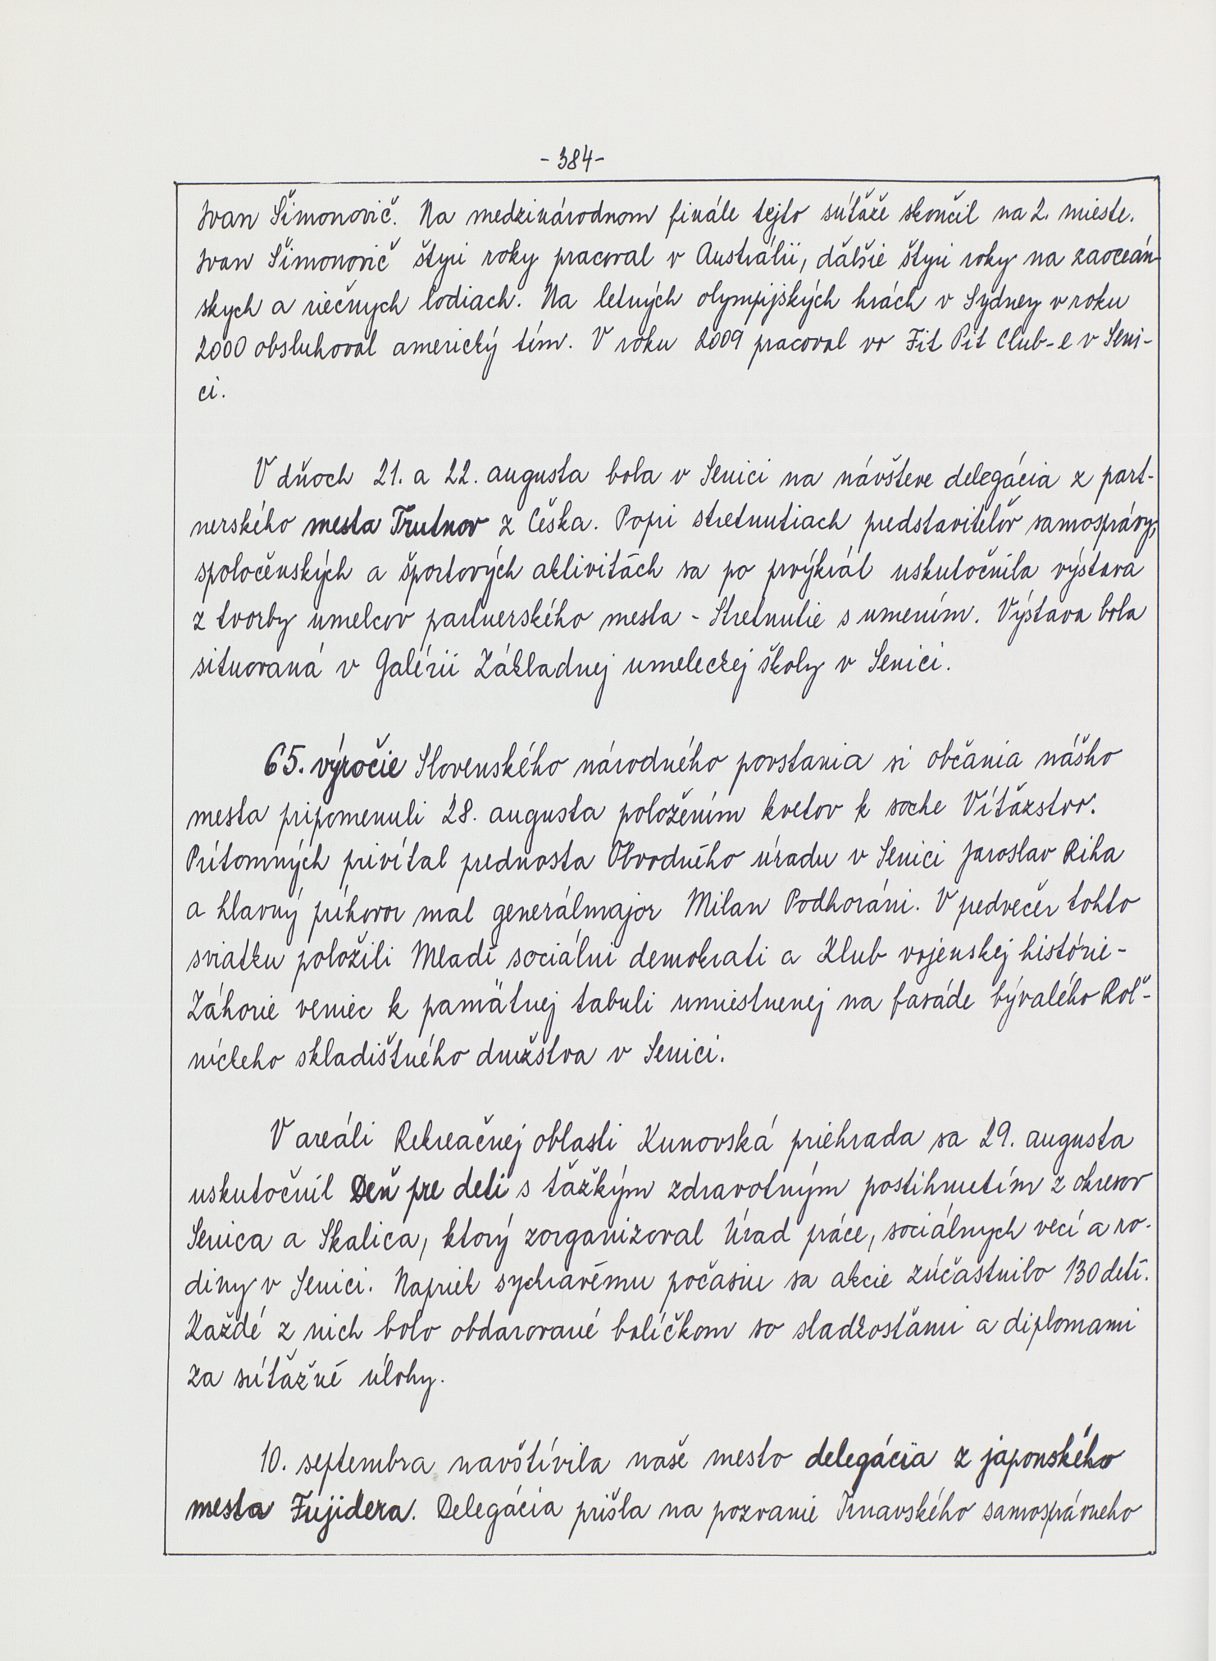 -384-
Ivan Šimonovič. Na medzinárodnom finále tejto súťaže skončil na 2. mieste.
Ivan Šimonovič štyri roky pracoval v Austrálii, ďalšie štyri roky na zaoceán-
skych a riečnych lodiach. Na letných olympijských hrách v Sydney v roku
2000 obsluhoval americký tím. V roku 2009 pracoval vo Fit Pit Club-e v Seni-
ci.
V dňoch 21. a 22. augusta bola v Senici na návšteve delegácia z part-
nerského mesta Trutnov z Česka. Popri stretnutiach predstaviteľov samosprávy,
spoločenských a športových aktivitách sa po prvýkrát uskutočnila výstava
z tvorby umelcov partnerského mesta - Stretnutie s umením. Výstava bola
situovaná v Galérii Základnej umeleckej školy v Senici.
65. výročie Slovenského národného povstania si občania nášho
mesta pripomenuli 28. augusta položením kvetov k soche Víťazstvo.
Prítomných privítal prednosta Obvodného úradu v Senici Jaroslav Riha
a hlavný príhovor mal generálmajor Milan Podhoráni. V pedvečer tohto
sviatku položili Mladí sociálni demokrati a Klub vojenskej histórie-
Záhorie veniec k pamätnej tabuli umiestnenej na fasáde bývalého Roľ-
níckeho skladištného družstva v Senici.
V areáli Rekreačnej oblasti Kunovská priehrada sa 29. augusta
uskutočnil Deň pre deti s ťažkým zdravotným postihnutím z okresov
Senica a Skalica, ktorý zorganizoval Úrad práce, sociálnych vecí a ro-
diny v Senici. Napriek sychravému počasiu sa akcie zúčastnilo 130 detí.
Každé z nich bolo obdarované balíčkom so sladkosťami a diplomami
za súťažné úlohy.
10. septembra navštívila naše mesto delegácia z japonského
mesta Fujidera. Delegácia prišla na pozvanie Trnavského samosprávneho